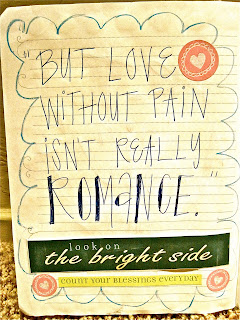 "BUT LOVE
WITHOUT PAIN
ISN'T REALLY
ROMANCE."
look on
the bright side
COUNT YOUR BLESSINGS EVERYDAY